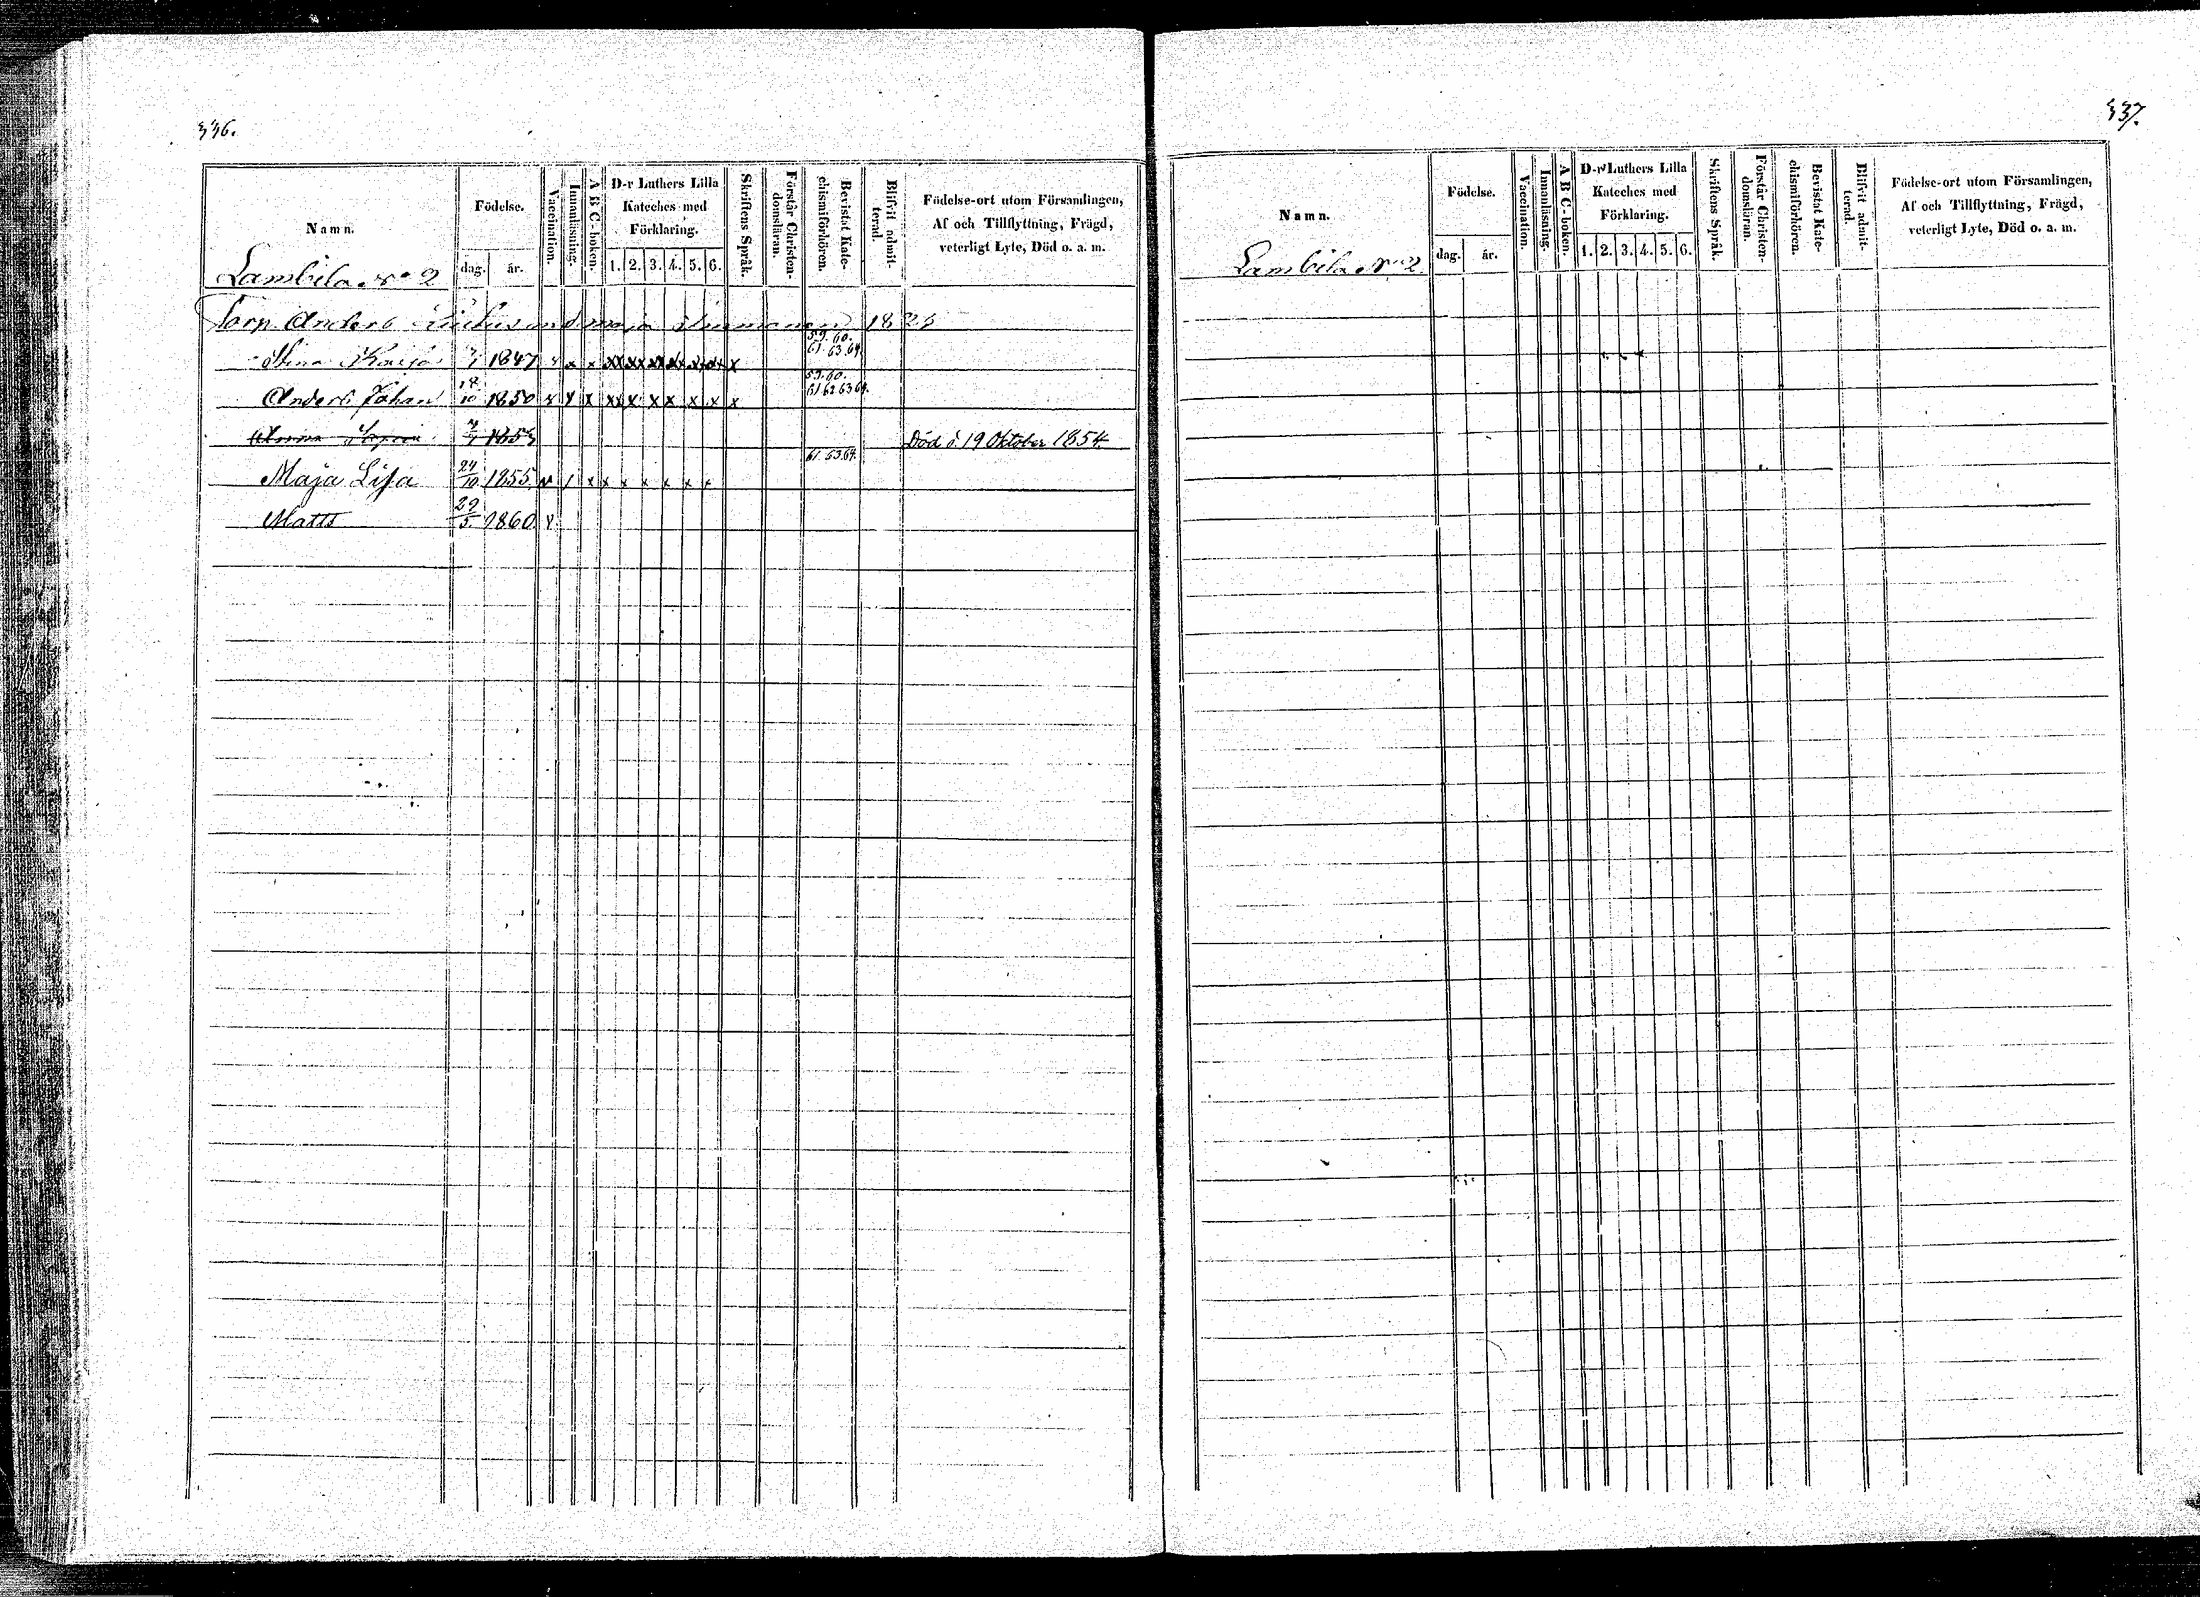 336.
Namn.
Födelse.
dag. år.
Vaccination.
Innanläsning.
A B C-boken.
D-r Luthers Lilla
Kateches med
Förklaring.
1. 2. 3. 4. 5. 6.
Skriftens Språk.
Förstår Christen-
domsläran.
Bevistat Kate-
chismiförhören.
Blifvit admit-
terad.
Födelse-ort utom Församlingen,
Af och Tillflyttning, Frägd,
veterligt Lyte, Död o. a. m.
Lambila No 2
Torp. Anders
59. 60.
Stina Kaisa 1847 x x x xx xx xx xx xx xx x 61. 63. 64.
59. 60.
Anders Johan 18/10 1850 x x x xx x x x x x x 61 62 63 64.
1853 Död d. 19 Oktober 1854.
61. 63. 64.
Maja Lisa 24/10 1855 x / x x x x x x x
Matts 29/5 1860 x
337.
Namn.
Födelse.
dag. år.
Vaccination.
Innanläsning.
A B C-boken.
D-r Luthers Lilla
Kateches med
Förklaring.
1. 2. 3. 4. 5. 6.
Skriftens Språk.
Förstår Christen-
domsläran.
Bevistat Kate-
chismiförhören.
Blifvit admit-
terad.
Födelse-ort utom Församlingen,
Af och Tillflyttning, Frägd,
veterligt Lyte, Död o. a. m.
Lambila No 2.